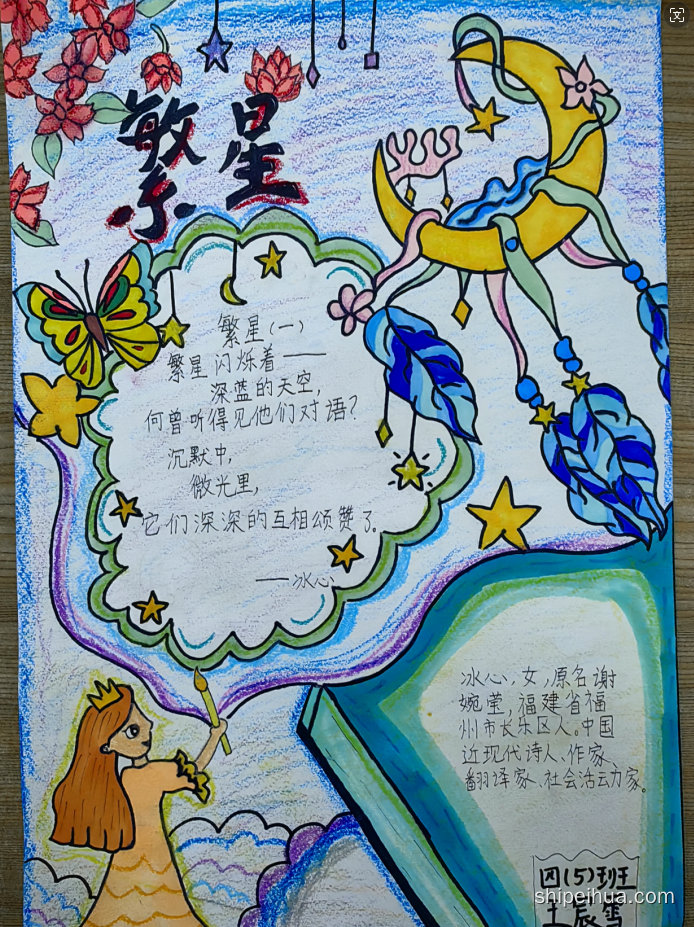 繁星
繁星(一)
繁星闪烁着——
深蓝的天空，
何曾听得见他们对语？
沉默中，
微光里，
它们深深的互相颂赞了。
——冰心
冰心，女，原名谢
婉莹，福建省福
州市长乐区人。中国
近现代诗人、作家、
翻译家、社会活动家。
四(5)班
王晨雪
shipeihua.com